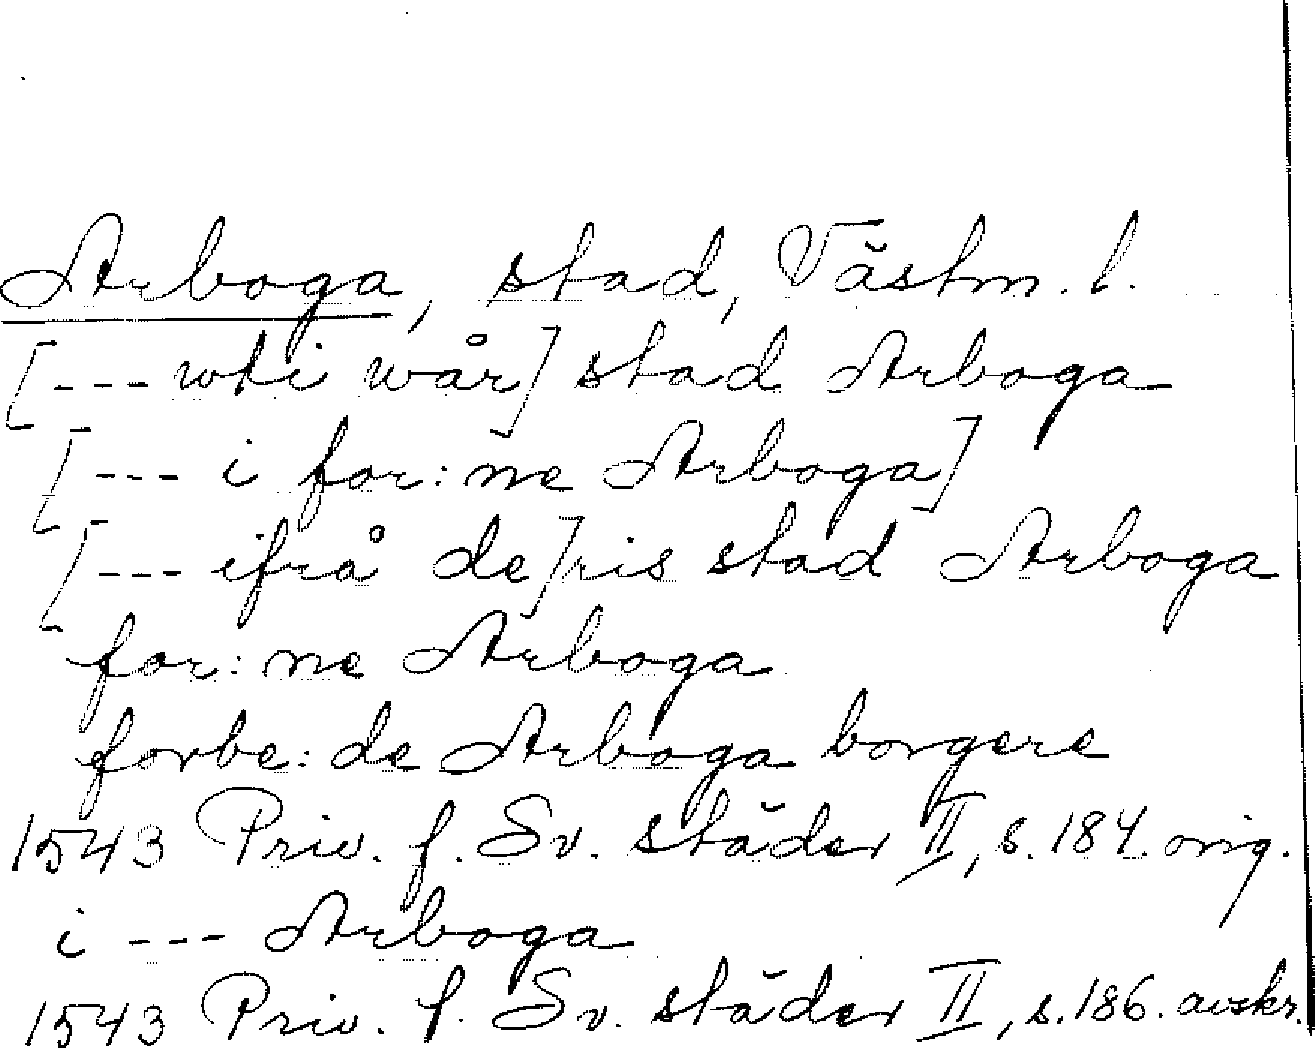 Arboga, stad, Västm. l.
[--- wti wår] stad Arboga
[--- i for:ne Arboga]
[--- ifrå de]ris stad Arboga
for:ne Arboga
forbe:de Arboga borgere
1543 Priv. f. Sv. städer II, s. 184. orig.
i --- Arboga
1543 Priv. f. Sv. städer II, s. 186. avskr.